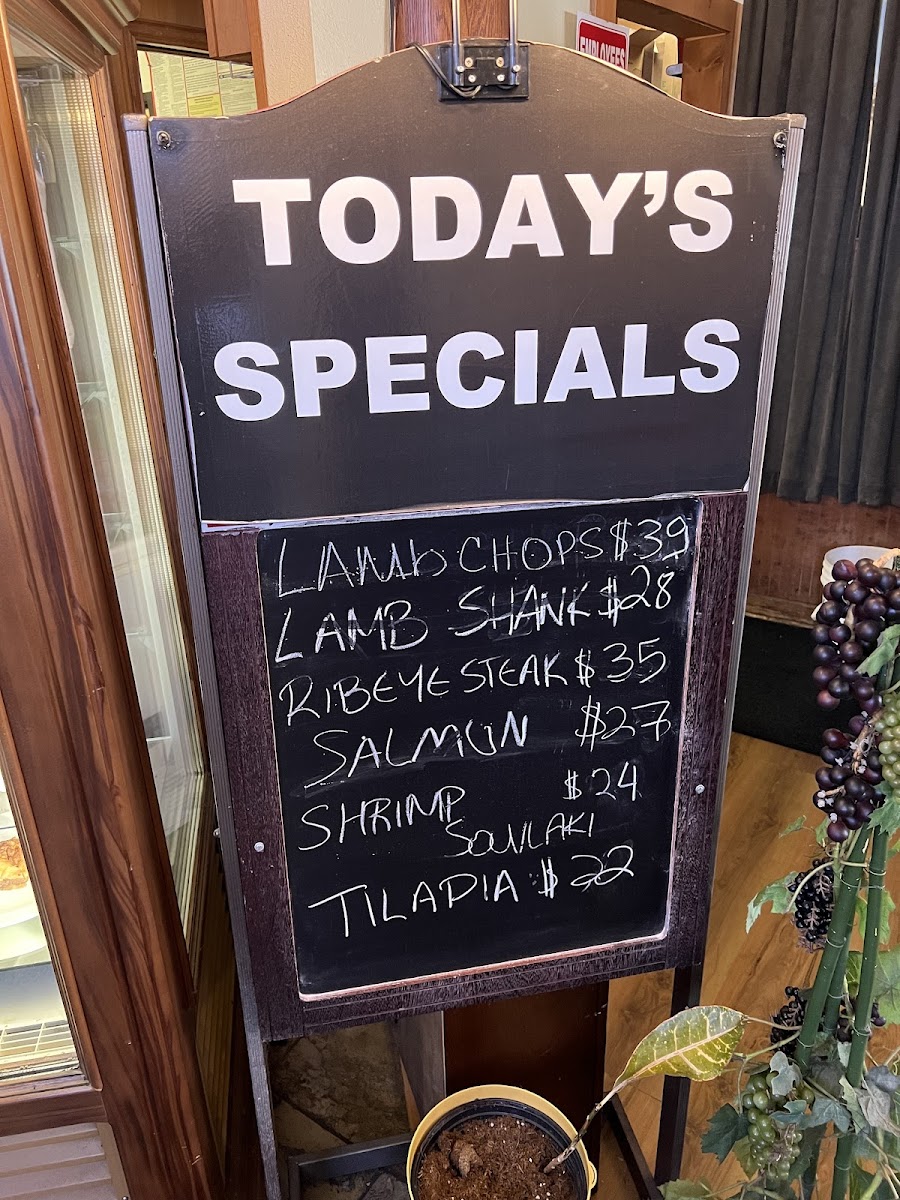 EMPLOYEES
TODAY'S
SPECIALS
LAMb CHOPS $39
LAMB SHANK $28
RIBEYE STEAK $35
SALMON $27
SHRIMP $24
SOUVLAKI
TILAPIA $22